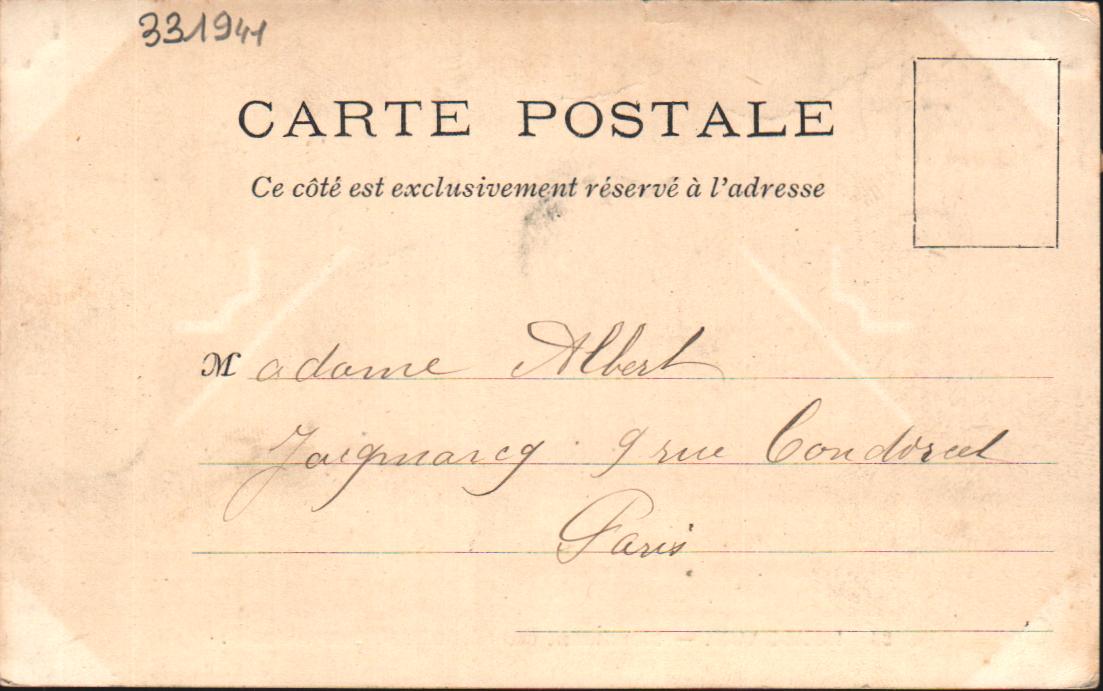 331941
CARTE POSTALE
Ce côté est exclusivement réservé à l'adresse
Madame Albert
9 rue Condorcet
Paris